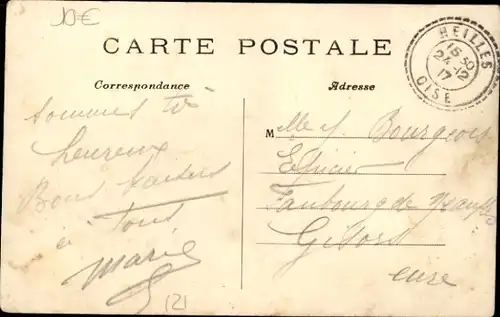 10€
CARTE POSTALE
HEILLES
16 30
24-12
17
OISE
Correspondance
Adresse
Sommes très
heureux
Bons baisers
à Tous
Marie
(2)
Mlle J. Bourgeois
Epicier
Faubourg de
Gisors
eure